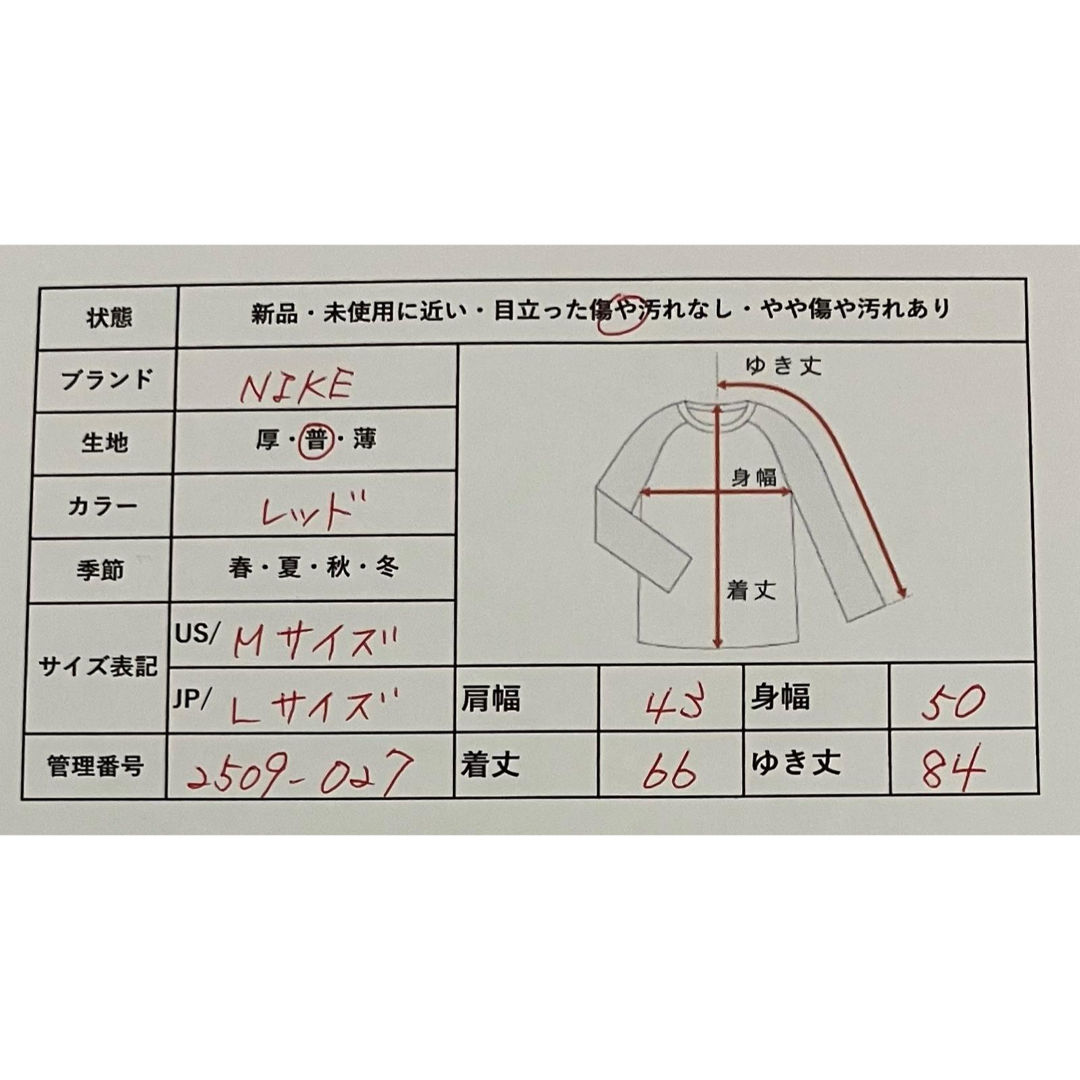 状態 新品・未使用に近い・目立った傷や汚れなし・やや傷や汚れあり
ブランド NIKE
生地 厚・普・薄
カラー レッド
季節 春・夏・秋・冬
サイズ表記 US/ Mサイズ
JP/ Lサイズ
管理番号 2509-027
ゆき丈
身幅
着丈
肩幅 43 身幅 50
着丈 66 ゆき丈 84